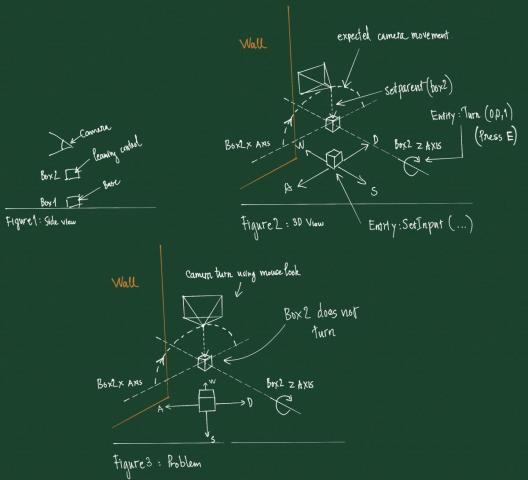 Camera
leaning control
Box2
Base
Box1
Figure1: Side view
Wall
expected camera movement
setparent(box2)
Entity:Turn (0,0,1)
(Press E)
Box2 x Axis
W
D
Box2 Z AXIS
A
S
Figure2: 3D View
Entity:SetInput (...)
Wall
Camera turn using mouse look
Box2 does not
turn
Box2 x Axis
Box2 Z AXIS
W
A
D
S
Figure3: Problem